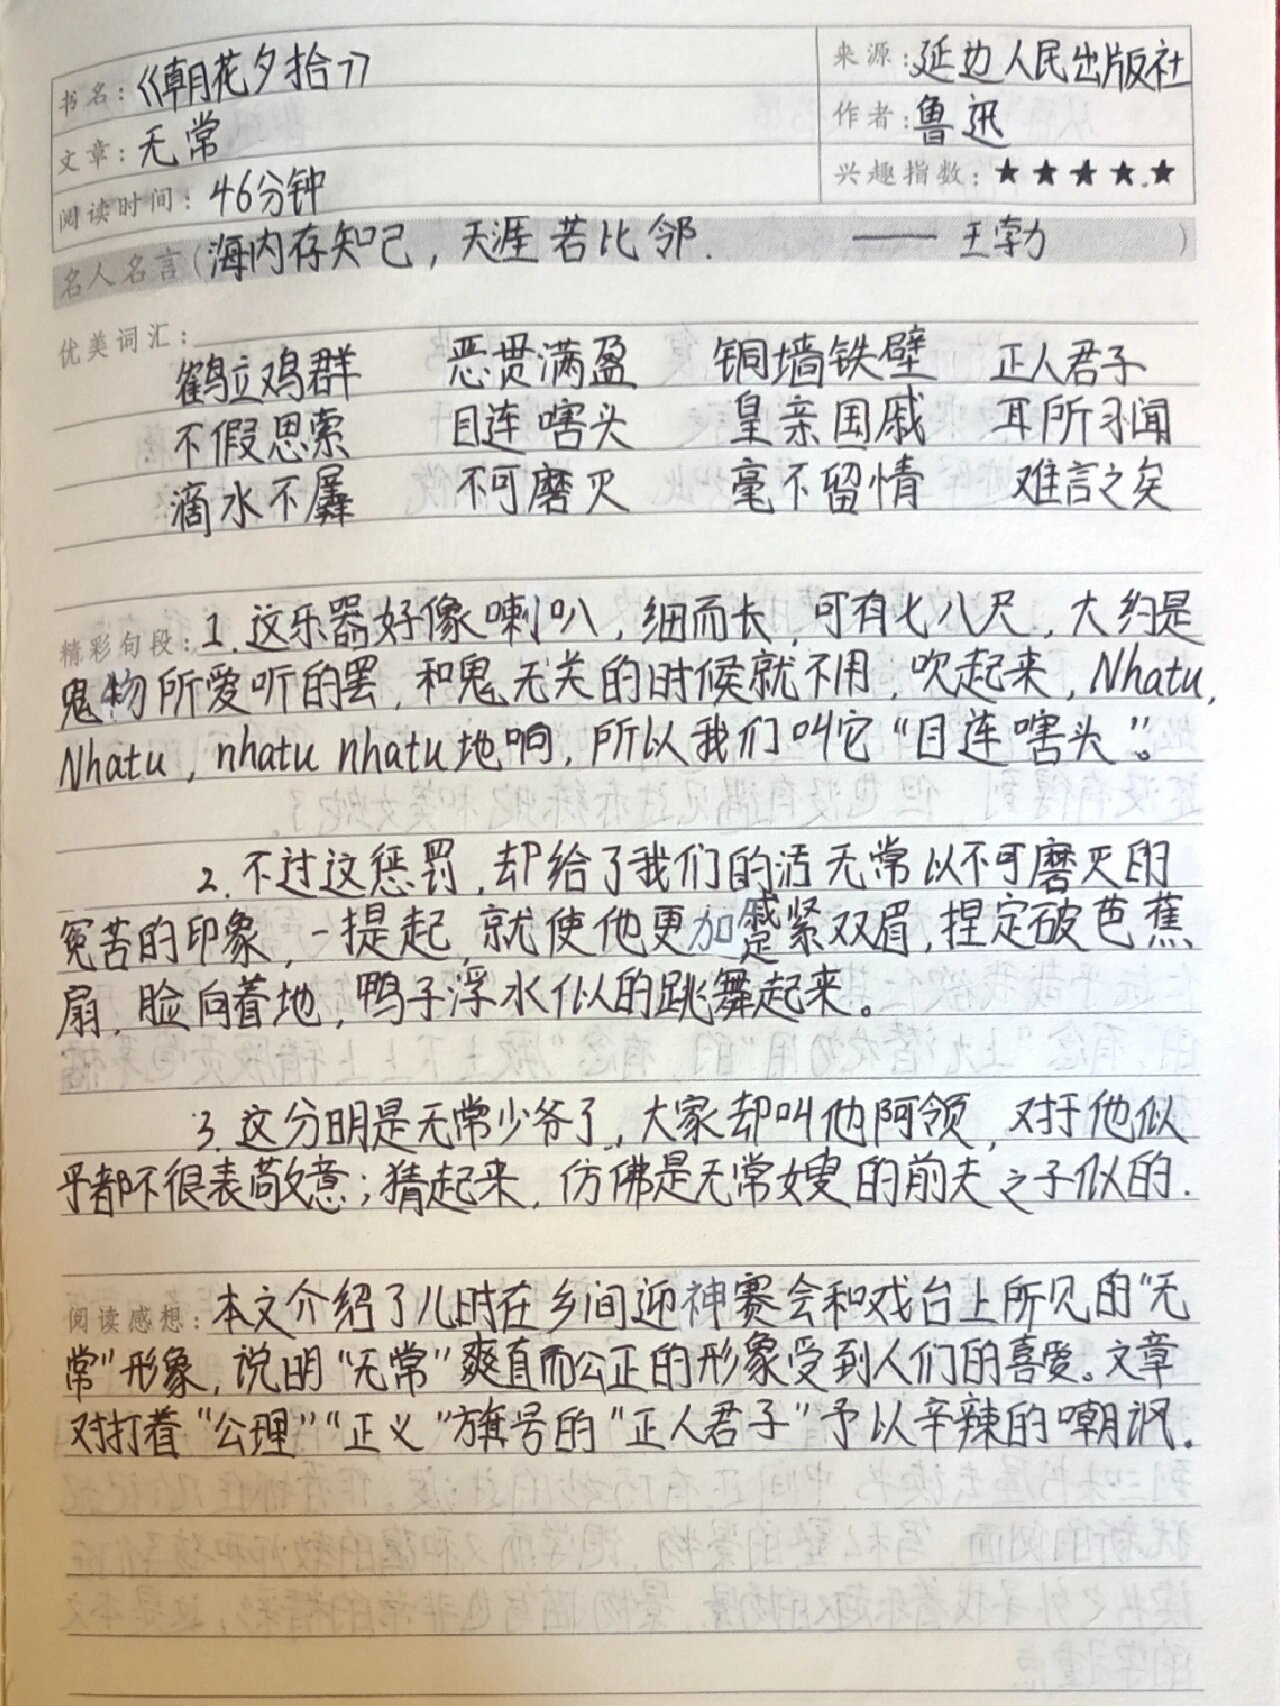 书名：《朝花夕拾》
来源：延边人民出版社
文章：无常
作者：鲁迅
阅读时间：46分钟
兴趣指数：★★★★★
名人名言（海内存知己，天涯若比邻. ——王勃）
优美词汇：
鹤立鸡群 恶贯满盈 铜墙铁壁 正人君子
不假思索 目连嗐头 皇亲国戚 耳所习闻
滴水不羼 不可磨灭 毫不留情 难言之矣
精彩句段：1.这乐器好像喇叭，细而长，可有七八尺，大约是
鬼物所爱听的罢，和鬼无关的时候就不用，吹起来，Nhatu，
Nhatu，nhatu nhatu地响，所以我们叫它“目连嗐头”。
2.不过这惩罚，却给了我们的活无常以不可磨灭的
冤苦的印象，一提起，就使他更加蹙紧双眉，捏定破芭蕉
扇，脸向着地，鸭子浮水似的跳舞起来。
3.这分明是无常少爷了，大家却叫他阿领，对于他似
乎都不很表敬意；猜起来，仿佛是无常嫂的前夫之子似的.
阅读感想：本文介绍了儿时在乡间迎神赛会和戏台上所见的“无
常”形象，说明“无常”爽直而公正的形象受到人们的喜爱。文章
对打着“公理”“正义”旗号的“正人君子”予以辛辣的嘲讽.